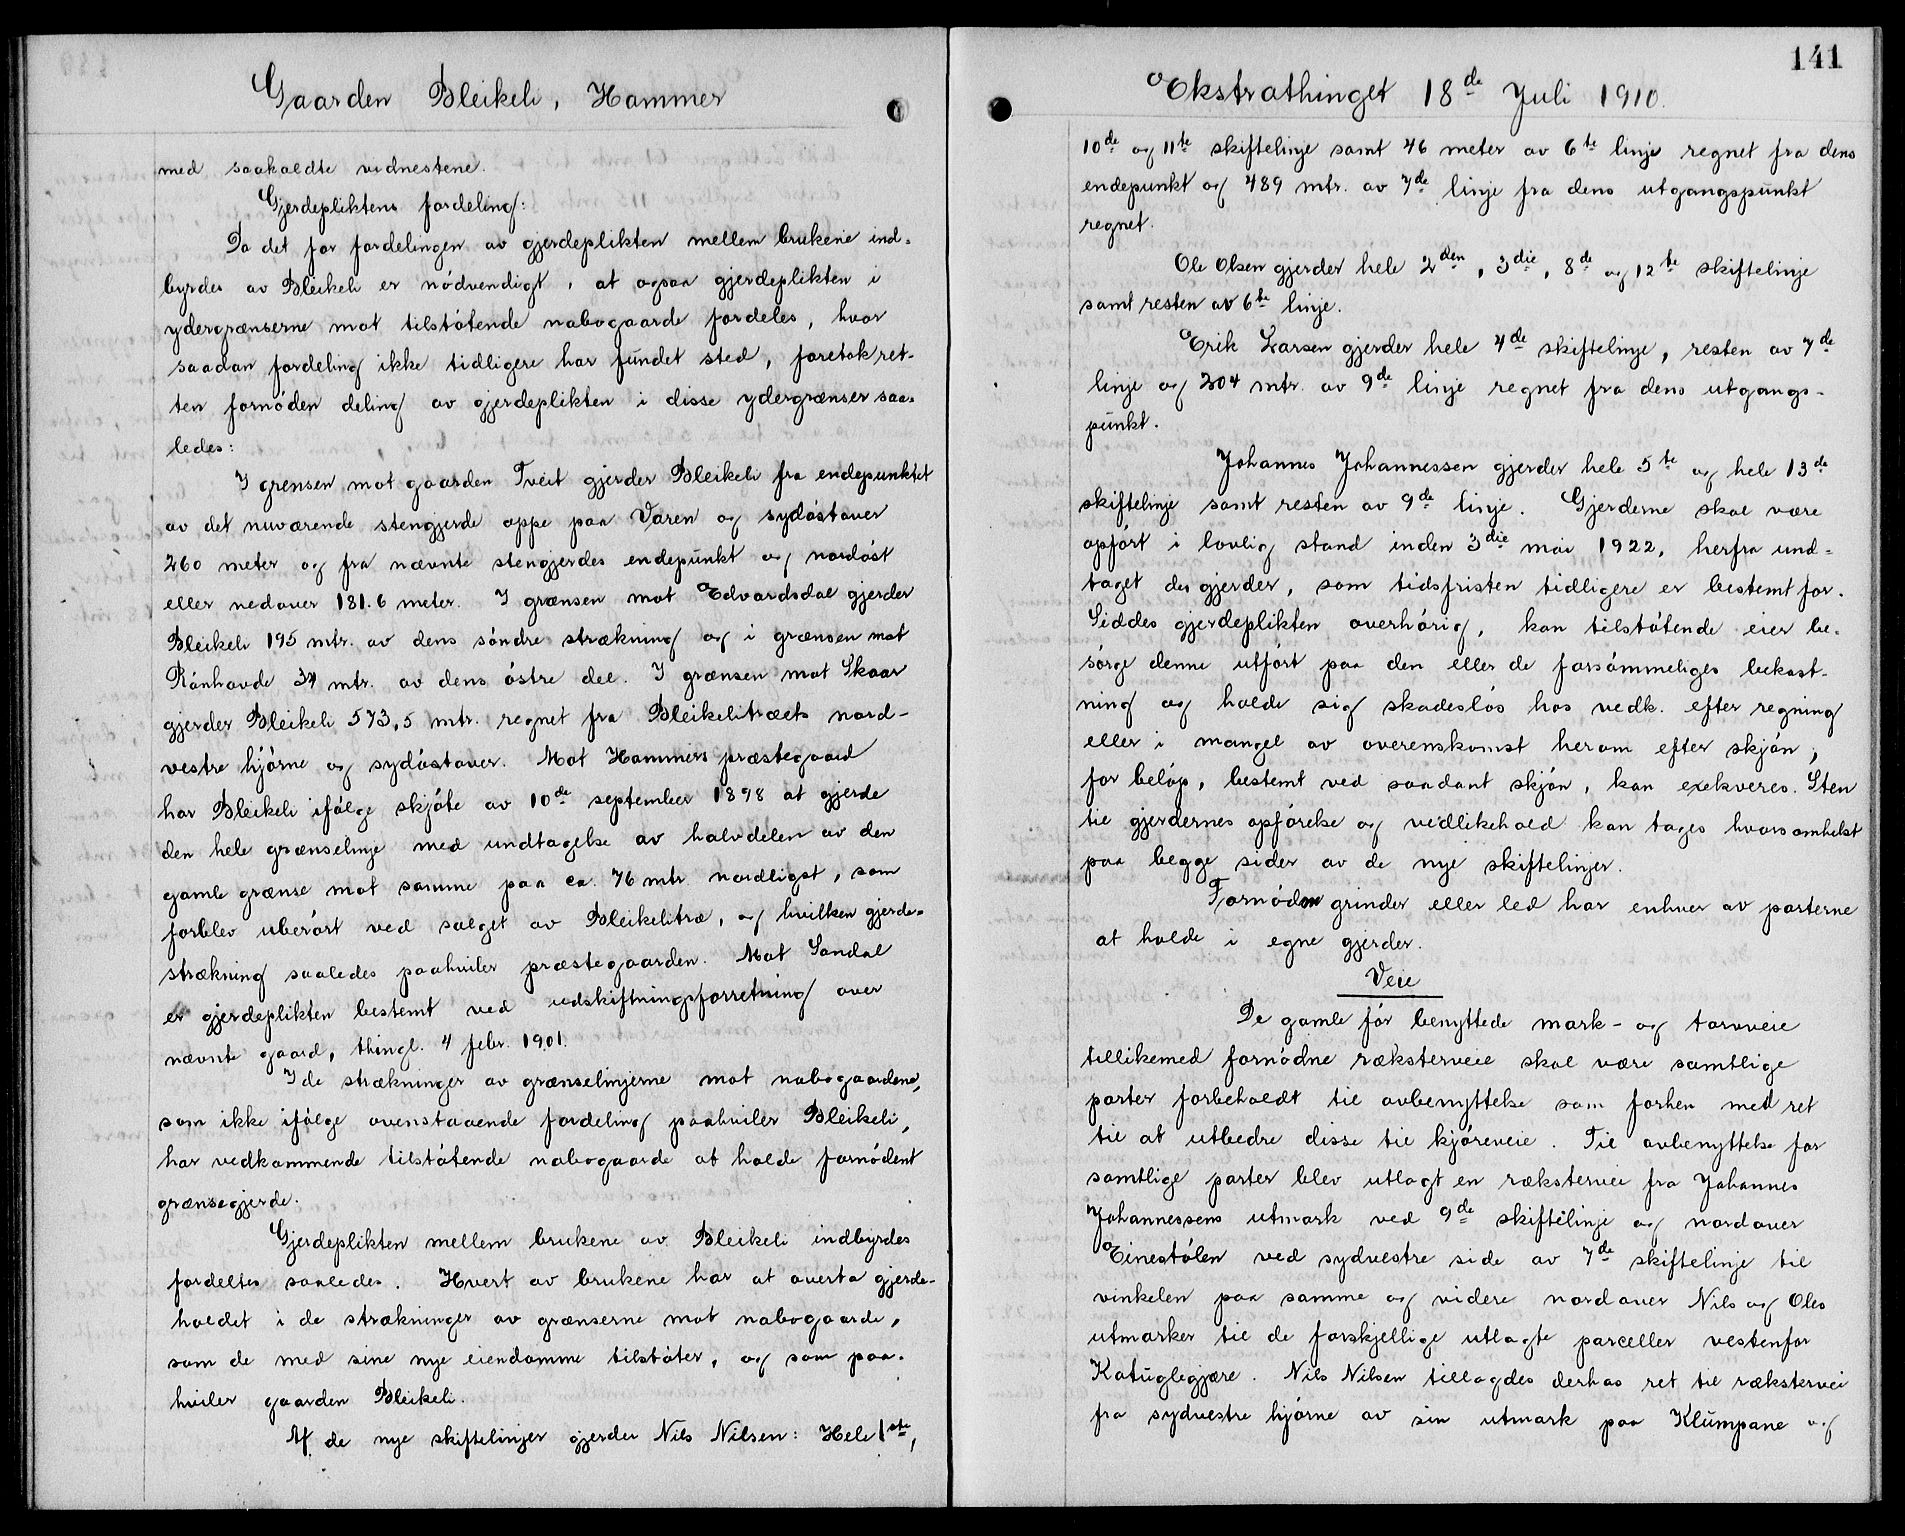 Gaarden Bleikeli, Hammer
med saakaldte vidnestene.
Gjerdepliktens fordeling:
Da det for fordelingen av gjerdeplikten mellem brukene ind-
byrdes av Bleikeli er nödvendigt, at ogsaa gjerdeplikten i
ydergrænserne mot tilstötende nabogaarde fordeles, hvor
saadan fordeling ikke tidligere har fundet sted, foretok ret-
ten fornöden deling av gjerdeplikten i disse ydergrænser saa-
ledes:
I grensen mot gaarden Tveit gjerder Bleikeli fra endepunktet
av det nuværende stengjerde oppe paa Varen og sydöstover
260 meter og fra nævnte stengjerdes endepunkt og nordöst
eller nedover 181.6 meter. I grænsen mot Edvardsdal gjerder
Bleikeli 195 mtr. av dens söndre strækning og i grænsen mot
Rönhovde 34 mtr. av dens östre del. I grænsen mot Skaar
gjerder Bleikeli 573,5 mtr. regnet fra Bleikelitræets nord-
vestre hjörne og sydöstover. Mot Hammers præstegaard
har Bleikeli ifölge skjöte av 10de september 1898 at gjerde
den hele grænselinje med undtagelse av halvdelen av den
gamle grænse mot samme paa ca. 76 mtr. nordligst, som
forblev uberört ved salget av Bleikelitræ, og hvilken gjerde-
strækning saaledes paahviler præstegaarden. Mot Sandal
er gjerdeplikten bestemt ved udskiftningsforretning over
nævnte gaard, thingl. 4 febr. 1901.
I de strækninger av grænselinjerne mot nabogaardene,
som ikke ifölge ovenstaaende fordeling paahviler Bleikeli,
har vedkommende tilstötende nabogaarde at holde fornödent
grænsegjerde.
Gjerdeplikten mellem brukene av Bleikeli indbyrdes
fordeltes saaledes. Hvert av brukene har at overta gjerde-
holdet i de strækninger av grænserne mot nabogaarde,
som de med sine nye eiendomme tilstöter, og som paa-
hviler gaarden Bleikeli.
Af de nye skiftelinjer gjerder Nils Nilsen: Hele 1ste,
141
Ekstrathinget 18de Juli 1910.
10de og 11te skiftelinje samt 46 meter av 6te linje regnet fra dens
endepunkt og 489 mtr. av 7de linje fra dens utgangspunkt
regnet.
Ole Olsen gjerder hele 2den, 3die, 8de og 12te skiftelinje
samt resten av 6te linje.
Erik Larsen gjerder hele 4de skiftelinje, resten av 7de
linje og 204 mtr. av 9de linje regnet fra dens utgangs-
punkt.
Johannes Johannessen gjerder hele 5te og hele 13de
skiftelinje samt resten av 9de linje. Gjerderne skal være
opfört i lovlig stand inden 3die mai 1922, herfra und-
taget de gjerder, som tidsfristen tidligere er bestemt for.
Siddes gjerdeplikten overhörig, kan tilstötende eier be-
sörge denne utfört paa den eller de forsömmeliges bekost-
ning og holde sig skadeslös hos vedk. efter regning
eller i mangel av overenskomst herom efter skjön,
for belöp, bestemt ved saadant skjön, kan exekveres. Sten
til gjerdernes opförelse og vedlikehold kan tages hvorsomhelst
paa begge sider av de nye skiftelinjer.
Fornödne grinder eller led har enhver av parterne
at holde i egne gjerder.
Veie
De gamle för benyttede mark- og torvveie
tillikemed fornödne ræksterveie skal være samtlige
parter forbeholdt til avbenyttelse som forhen med ret
til at utbedre disse til kjöreveie. Til avbenyttelse for
samtlige parter blev utlagt en rækstervei fra Johannes
Johannessens utmark ved 9de skiftelinje og nordover
Einestölen ved sydvestre side av 7de skiftelinje til
vinkelen paa samme og videre nordover Nils og Oles
utmarker til de forskjellige utlagte parceller vestenfor
Katuglegjære. Nils Nilsen tillagdes derhos ret til rækstervei
fra sydvestre hjörne av sin utmark paa Klumpane og